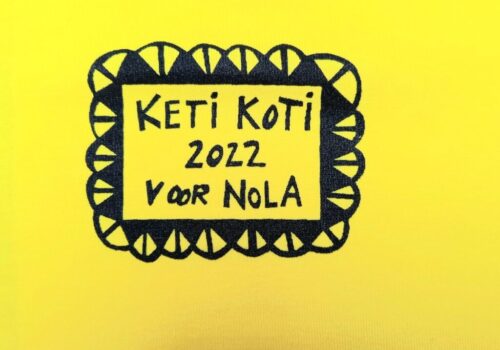 KETI KOTI
2022
VOOR NOLA